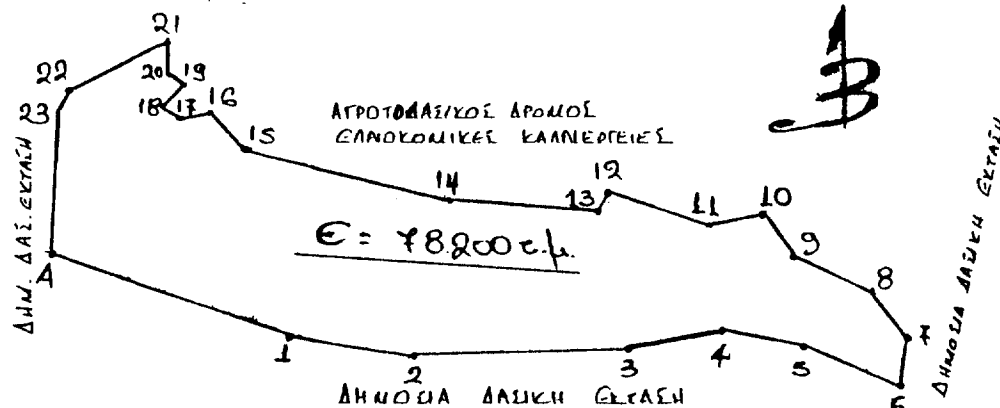 21
22
20 19
23
18 17 16
15
ΑΓΡΟΤΟΔΑΣΙΚΟΣ ΔΡΟΜΟΣ
ΕΛΑΙΟΚΟΜΙΚΕΣ ΚΑΛΛΙΕΡΓΕΙΕΣ
Β
14
13
12
11
10
9
8
7
Ε = 78.200 τ.μ.
ΔΗΜ. ΔΑΣ. ΕΚΤΑΣΗ
Α
1
2
3
4
5
6
ΔΗΜΟΣΙΑ ΔΑΣΙΚΗ ΕΚΤΑΣΗ
ΔΗΜΟΣΙΑ ΔΑΣΙΚΗ ΕΚΤΑΣΗ